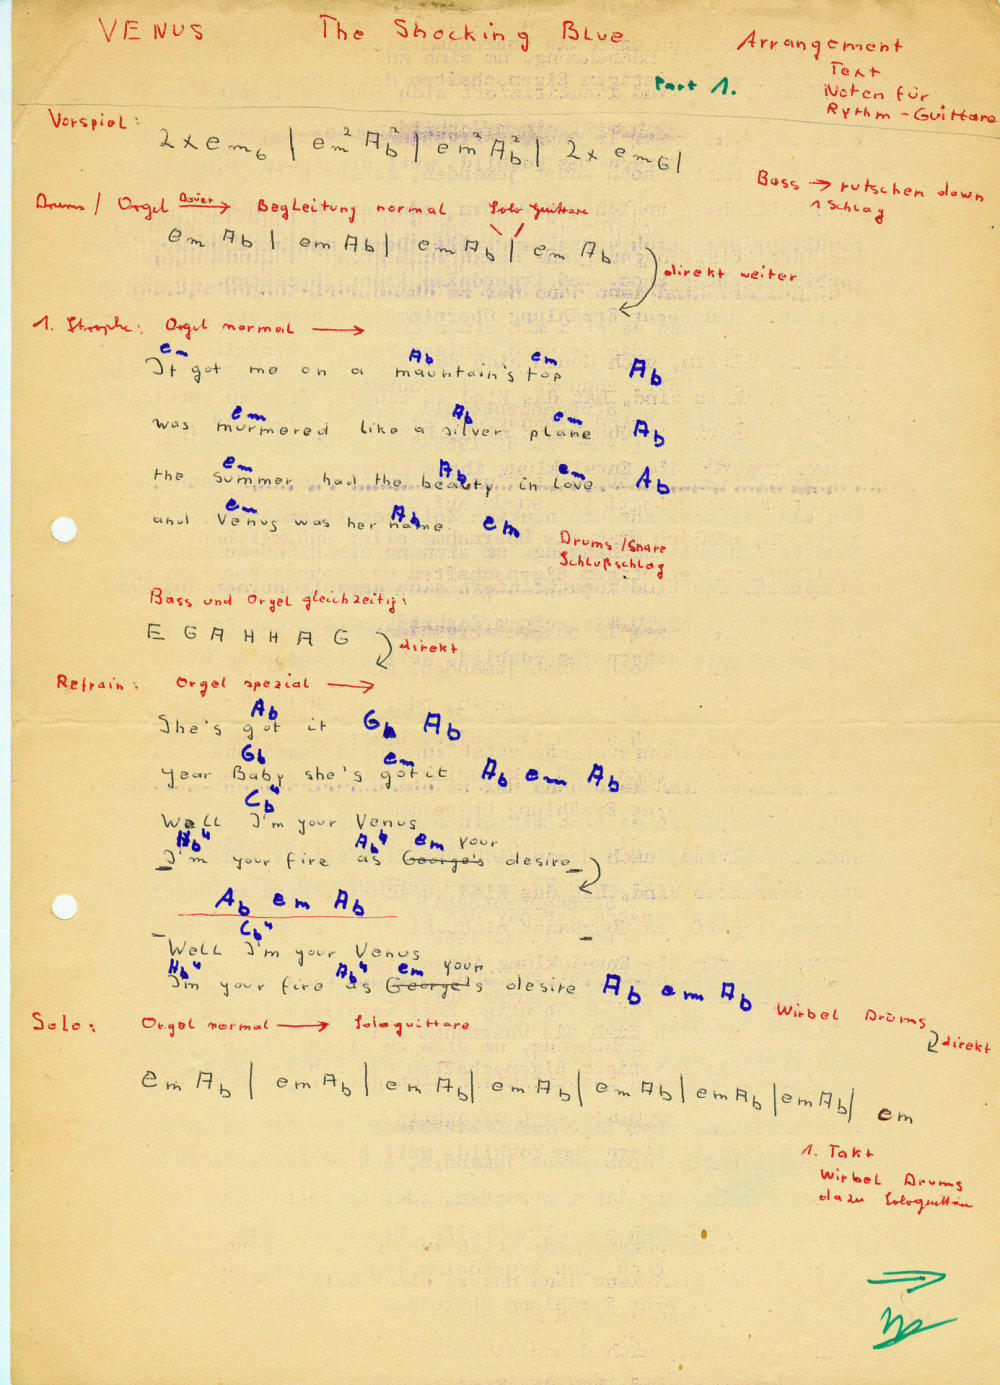 VENUS The Shocking Blue
Arrangement
Text
Part 1.
Noten für
Rythm-Guittare
Vorspiel:
2x em6 | em² Ab² | em² Ab² | 2x em6 |
Bass → rutschen down
1 Schlag
Drums / Orgel Dauer → Begleitung normal Solo Guittare
em Ab | em Ab | em Ab | em Ab
direkt weiter
1. Strophe: Orgel normal →
em Ab em
It got me on a mauntain's top Ab
em Ab em
was murmered like a silver plane Ab
em Ab em
the summer had the beauty in love Ab
em Ab
and Venus was her name em
Drums / Snare
Schlußschlag
Bass und Orgel gleichzeitig:
E G A H H A G direkt
Refrain: Orgel spezial →
Ab
She's got it Gb Ab
Gb em
year Baby she's got it Ab em Ab
Cb4
Well I'm your Venus
Hb4 Ab4 em your
I'm your fire as George's desire
Ab em Ab
Cb4
Well I'm your Venus
Hb4 Ab4 em your
I'm your fire as George's desire Ab em Ab Wirbel Drums
direkt
Solo: Orgel normal → Sologuittare
em Ab | em Ab | em Ab | em Ab | em Ab | em Ab | em Ab | em
1. Takt
Wirbel Drums
dazu Sologuittare